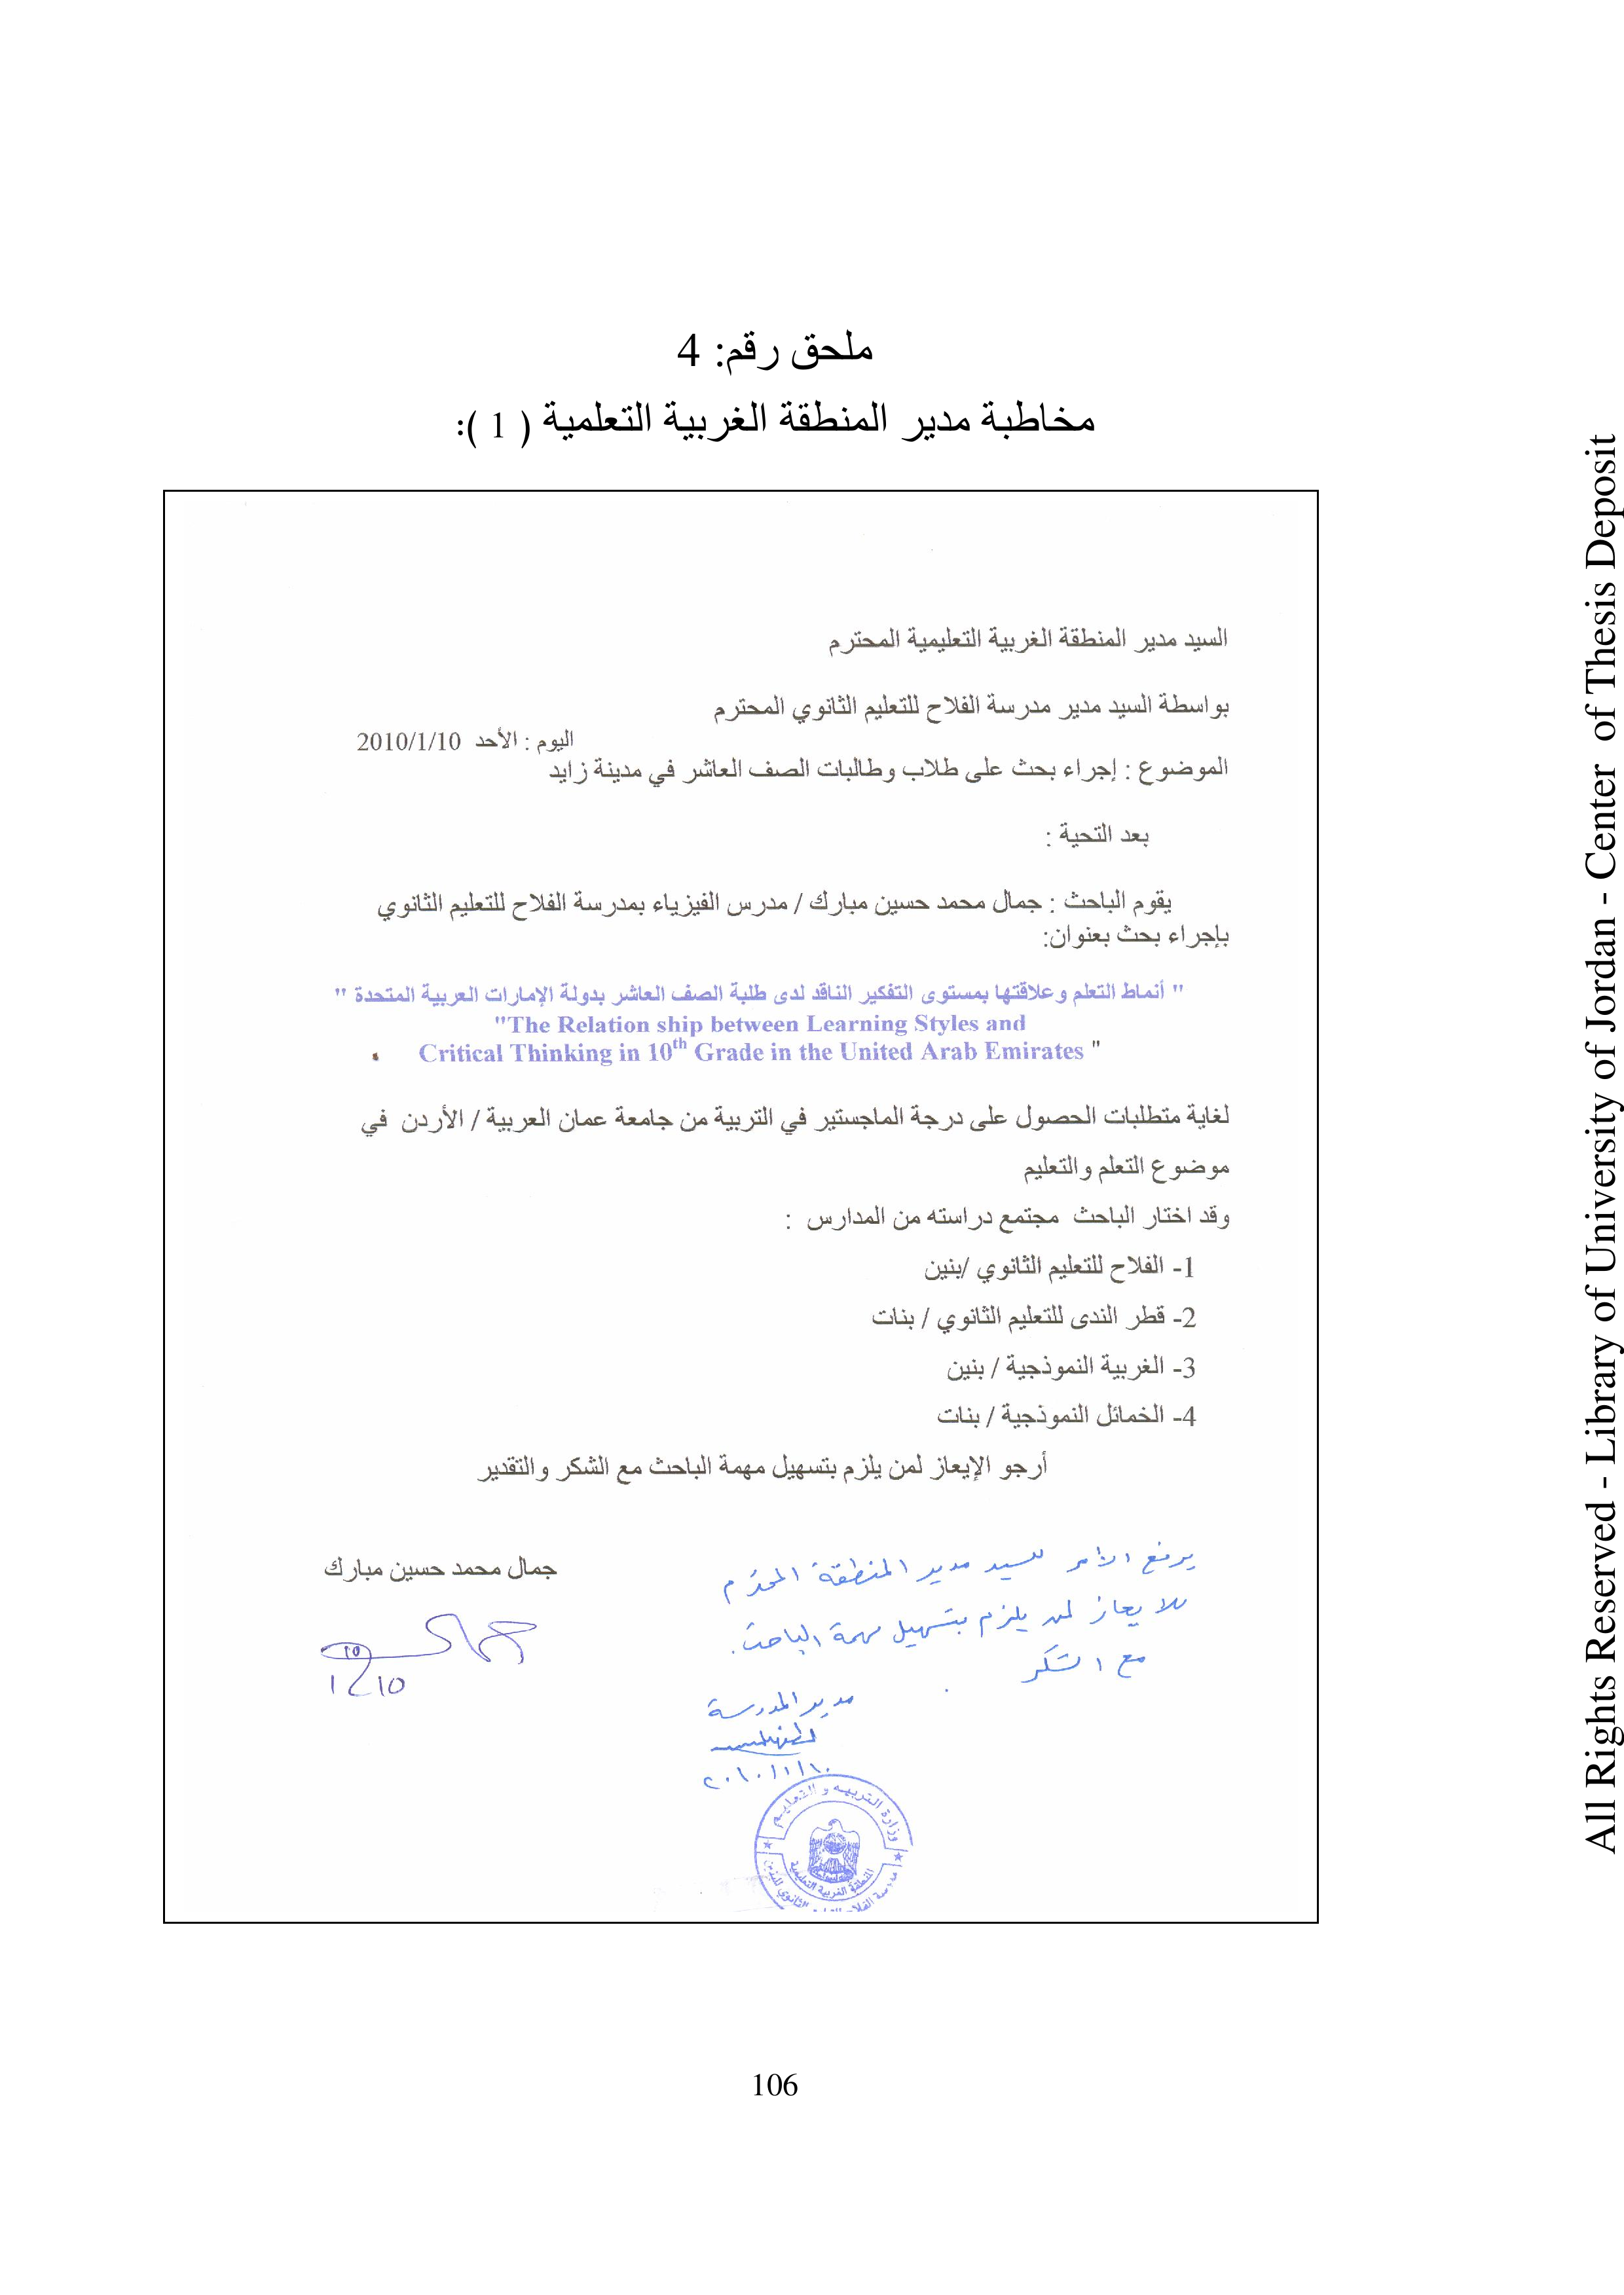 ملحق رقم: 4
مخاطبة مدير المنطقة الغربية التعلمية ( 1 ):
السيد مدير المنطقة الغربية التعليمية المحترم
بواسطة السيد مدير مدرسة الفلاح للتعليم الثانوي المحترم
اليوم : الأحد 2010/1/10
الموضوع : إجراء بحث على طلاب وطالبات الصف العاشر في مدينة زايد
بعد التحية :
يقوم الباحث : جمال محمد حسين مبارك / مدرس الفيزياء بمدرسة الفلاح للتعليم الثانوي
بإجراء بحث بعنوان:
" أنماط التعلم وعلاقتها بمستوى التفكير الناقد لدى طلبة الصف العاشر بدولة الإمارات العربية المتحدة "
"The Relation ship between Learning Styles and
Critical Thinking in 10th Grade in the United Arab Emirates "
لغاية متطلبات الحصول على درجة الماجستير في التربية من جامعة عمان العربية / الأردن في
موضوع التعلم والتعليم
وقد اختار الباحث مجتمع دراسته من المدارس :
1- الفلاح للتعليم الثانوي /بنين
2- قطر الندى للتعليم الثانوي / بنات
3- الغربية النموذجية / بنين
4- الخمائل النموذجية / بنات
أرجو الإيعاز لمن يلزم بتسهيل مهمة الباحث مع الشكر والتقدير
جمال محمد حسين مبارك
يرفع الأمر للسيد مدير المنطقة المحترم
للايعاز لمن يلزم بتسهيل مهمة الباحث.
مع الشكر
مدير المدرسة
٢٠١٠/١/١٠
وزارة التربية و التعليم
المنطقة الغربية التعليمية
106
All Rights Reserved - Library of University of Jordan - Center of Thesis Deposit